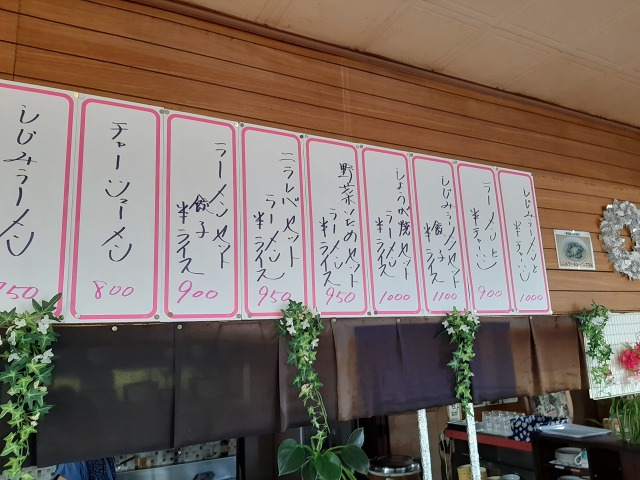 しじみラーメンと
半チャーハン
1000
ラーメンと
半チャーハン
900
しじみラーメンセット
餃子
半ライス
1100
しょうが焼セット
ラーメン
半ライス
1000
野菜いためセット
ラーメン
半ライス
950
ニラレバセット
ラーメン
半ライス
950
ラーメンセット
餃子
半ライス
900
チャーシューメン
800
しじみラーメン